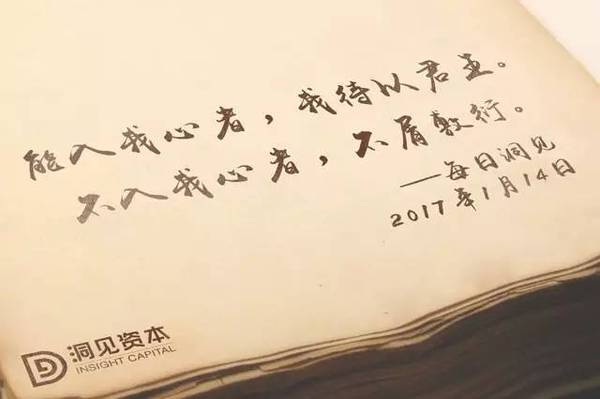 能入我心者，我待以君王。
不入我心者，不屑敷衍。
——每日洞见
2017年1月14日
洞见资本
INSIGHT CAPITAL